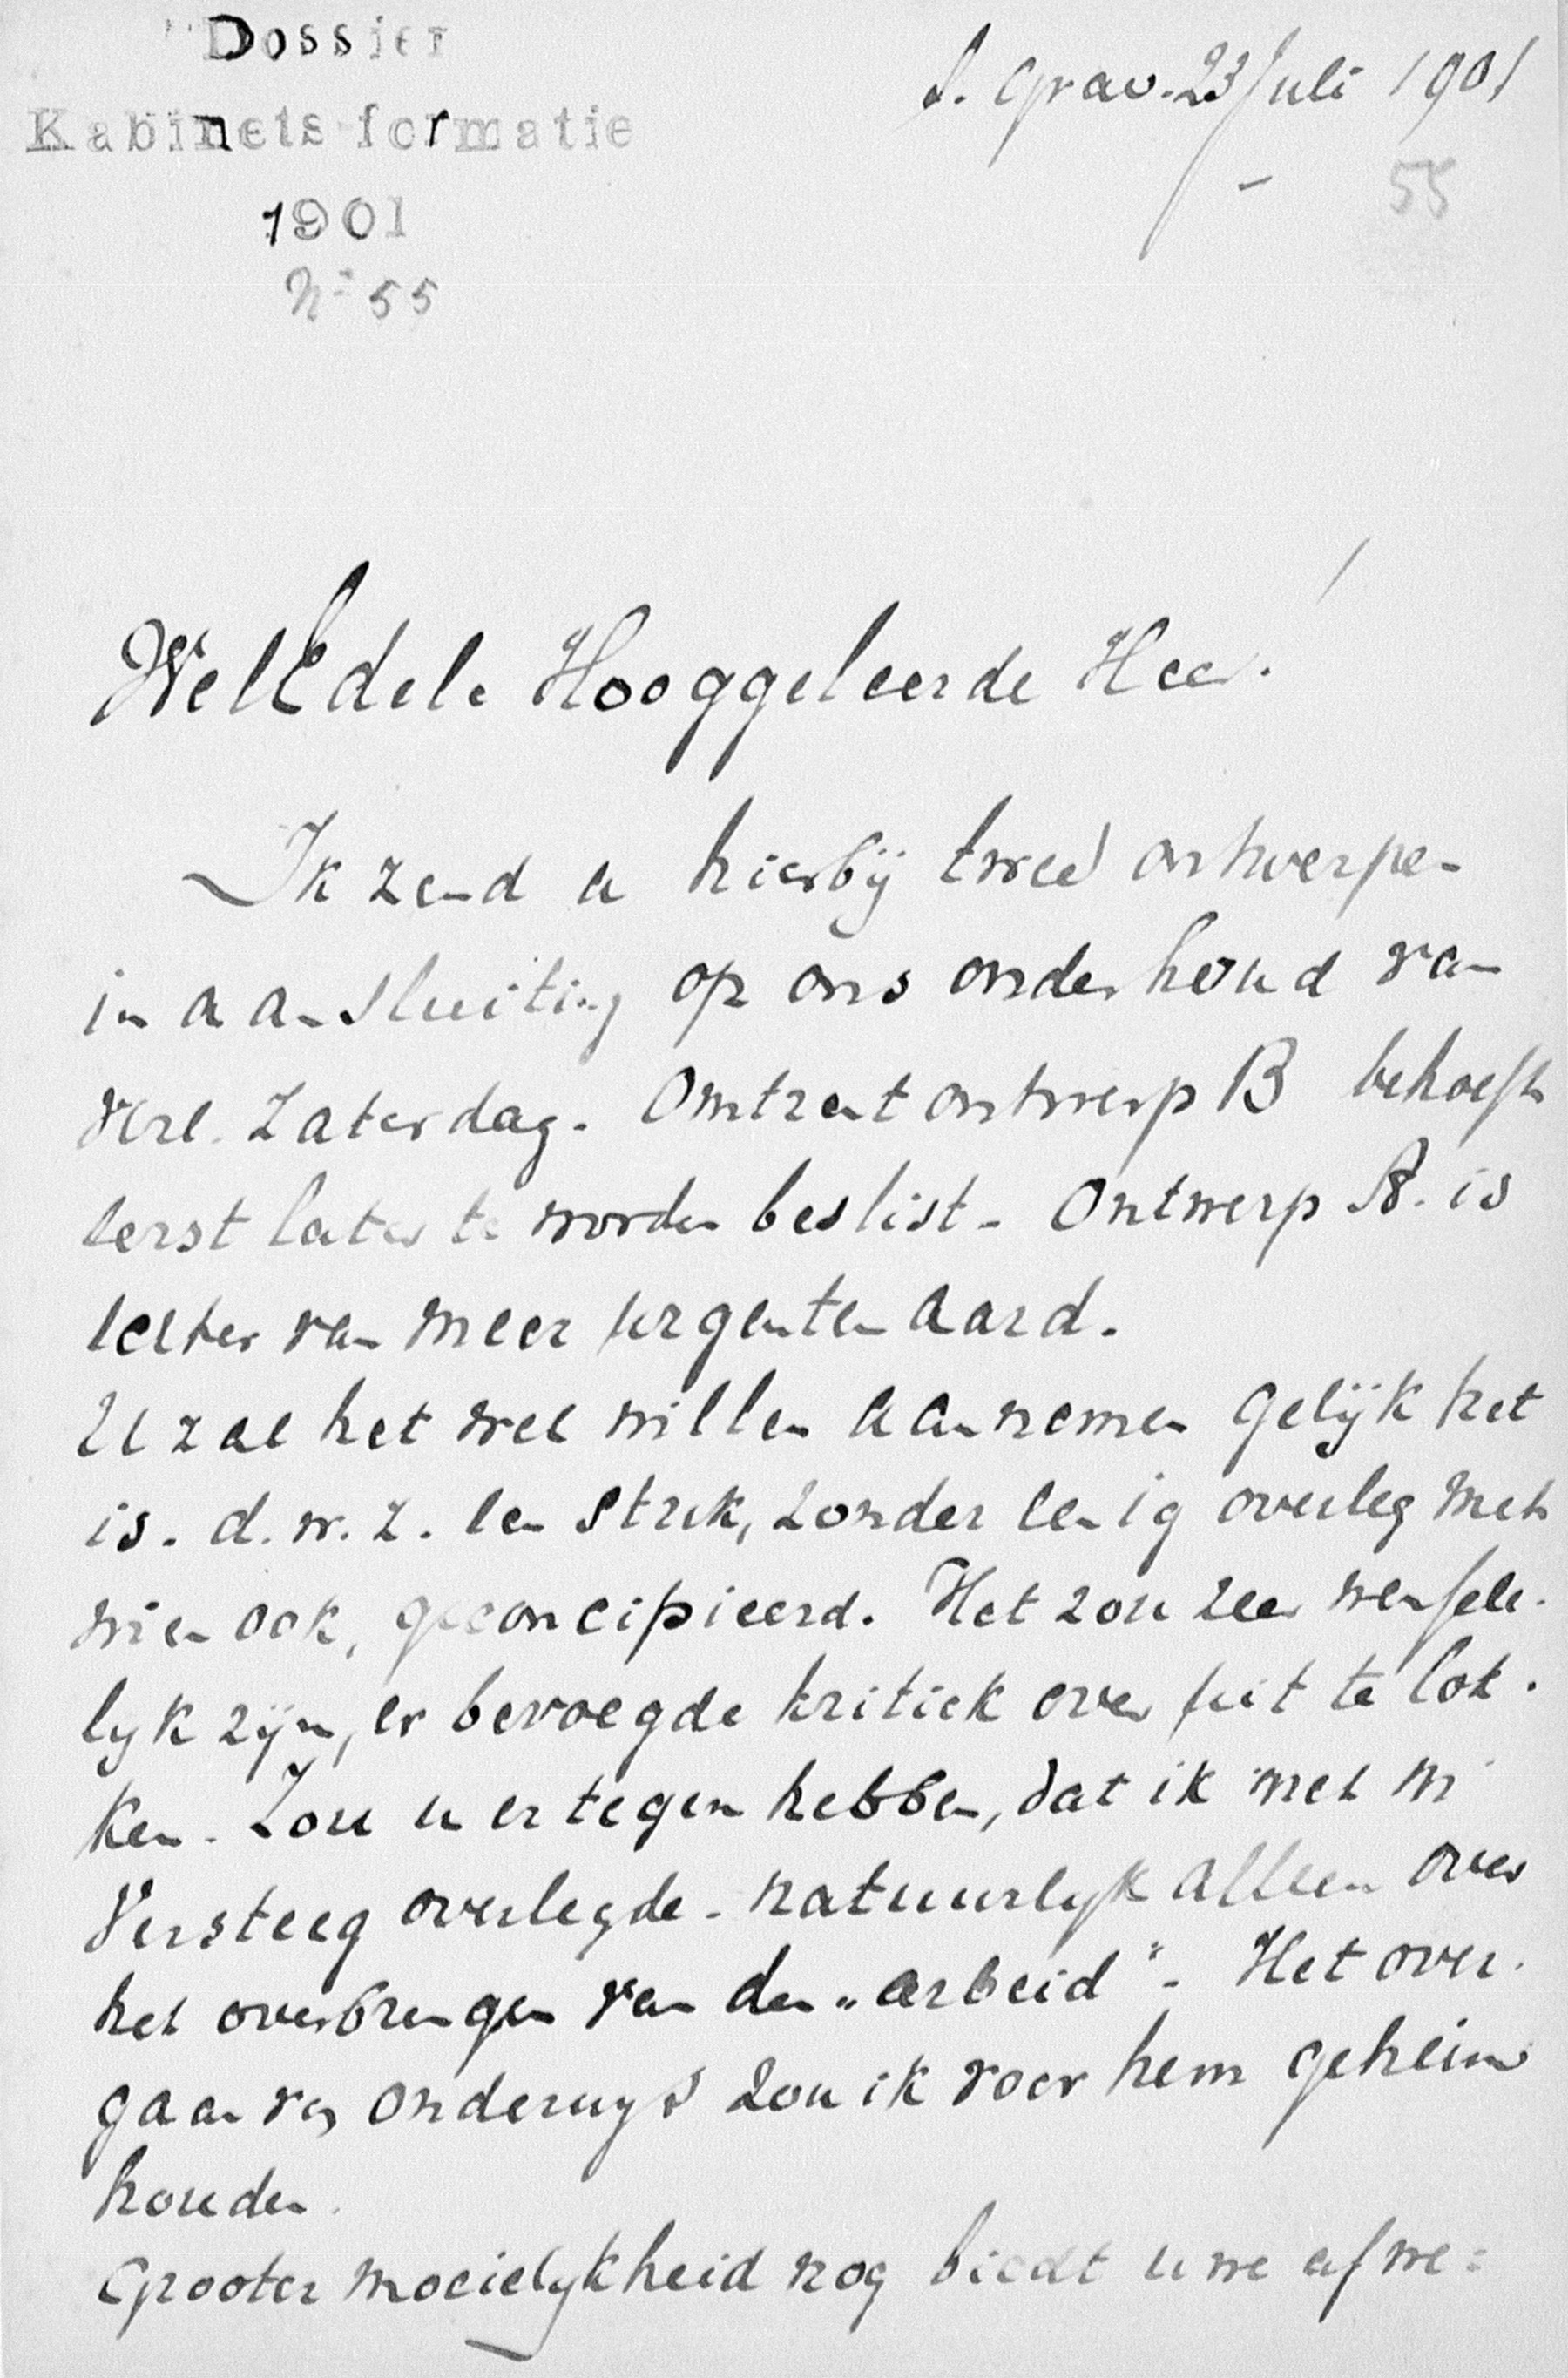 Dossier
Kabinets formatie
1901
No 55
s. Grav. 23 Juli 1901
55
WelEdele Hooggeleerde Heer!
Ik zend u hierbij twee ontwerpen
in aansluiting op ons onderhoud van
verl. Zaterdag. Omtrent ontwerp B behoeft
eerst later te worden beslist. Ontwerp A. is
echter van meer urgenten aard.
U zal het wel willen aannemen gelijk het
is. d.w.z. een stuk, zonder eenig overleg met
wien ook, geconcipieerd. Het zou zeer wensche-
lyk zijn, er bevoegde kritiek over uit te lok-
ken. Zou u er tegen hebben, dat ik met Mr
Versteeg overlegde - natuurlyk alleen over
het overbrengen van den „arbeid". Het over-
gaan van onderwys zou ik voor hem geheim
houden.
Grooter moeielykheid nog biedt uwe afwe-